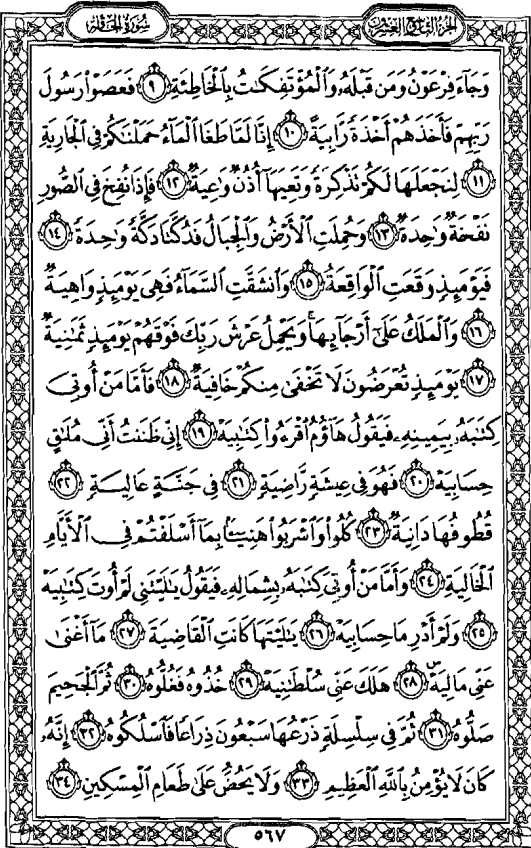 سُورَةُ الحَاقَّةِ
الجزء التاسع والعشرون
وَجَآءَ فِرْعَوْنُ وَمَن قَبْلَهُۥ وَٱلْمُؤْتَفِكَٰتُ بِٱلْخَاطِئَةِ ٩ فَعَصَوْا۟ رَسُولَ
رَبِّهِمْ فَأَخَذَهُمْ أَخْذَةً رَّابِيَةً ١٠ إِنَّا لَمَّا طَغَا ٱلْمَآءُ حَمَلْنَٰكُمْ فِى ٱلْجَارِيَةِ
١١ لِنَجْعَلَهَا لَكُمْ تَذْكِرَةً وَتَعِيَهَآ أُذُنٌ وَٰعِيَةٌ ١٢ فَإِذَا نُفِخَ فِى ٱلصُّورِ
نَفْخَةٌ وَٰحِدَةٌ ١٣ وَحُمِلَتِ ٱلْأَرْضُ وَٱلْجِبَالُ فَدُكَّتَا دَكَّةً وَٰحِدَةً ١٤
فَيَوْمَئِذٍ وَقَعَتِ ٱلْوَاقِعَةُ ١٥ وَٱنشَقَّتِ ٱلسَّمَآءُ فَهِىَ يَوْمَئِذٍ وَاهِيَةٌ
١٦ وَٱلْمَلَكُ عَلَىٰٓ أَرْجَآئِهَا وَيَحْمِلُ عَرْشَ رَبِّكَ فَوْقَهُمْ يَوْمَئِذٍ ثَمَٰنِيَةٌ
١٧ يَوْمَئِذٍ تُعْرَضُونَ لَا تَخْفَىٰ مِنكُمْ خَافِيَةٌ ١٨ فَأَمَّا مَنْ أُوتِىَ
كِتَٰبَهُۥ بِيَمِينِهِۦ فَيَقُولُ هَآؤُمُ ٱقْرَءُوا۟ كِتَٰبِيَهْ ١٩ إِنِّى ظَنَنتُ أَنِّى مُلَٰقٍ
حِسَابِيَهْ ٢٠ فَهُوَ فِى عِيشَةٍ رَّاضِيَةٍ ٢١ فِى جَنَّةٍ عَالِيَةٍ ٢٢
قُطُوفُهَا دَانِيَةٌ ٢٣ كُلُوا۟ وَٱشْرَبُوا۟ هَنِيٓـًٔۢا بِمَآ أَسْلَفْتُمْ فِى ٱلْأَيَّامِ
ٱلْخَالِيَةِ ٢٤ وَأَمَّا مَنْ أُوتِىَ كِتَٰبَهُۥ بِشِمَالِهِۦ فَيَقُولُ يَٰلَيْتَنِى لَمْ أُوتَ كِتَٰبِيَهْ
٢٥ وَلَمْ أَدْرِ مَا حِسَابِيَهْ ٢٦ يَٰلَيْتَهَا كَانَتِ ٱلْقَاضِيَةَ ٢٧ مَآ أَغْنَىٰ
عَنِّى مَالِيَهْ ۜ ٢٨ هَلَكَ عَنِّى سُلْطَٰنِيَهْ ٢٩ خُذُوهُ فَغُلُّوهُ ٣٠ ثُمَّ ٱلْجَحِيمَ
صَلُّوهُ ٣١ ثُمَّ فِى سِلْسِلَةٍ ذَرْعُهَا سَبْعُونَ ذِرَاعًا فَٱسْلُكُوهُ ٣٢ إِنَّهُۥ
كَانَ لَا يُؤْمِنُ بِٱللَّهِ ٱلْعَظِيمِ ٣٣ وَلَا يَحُضُّ عَلَىٰ طَعَامِ ٱلْمِسْكِينِ ٣٤
٥٦٧